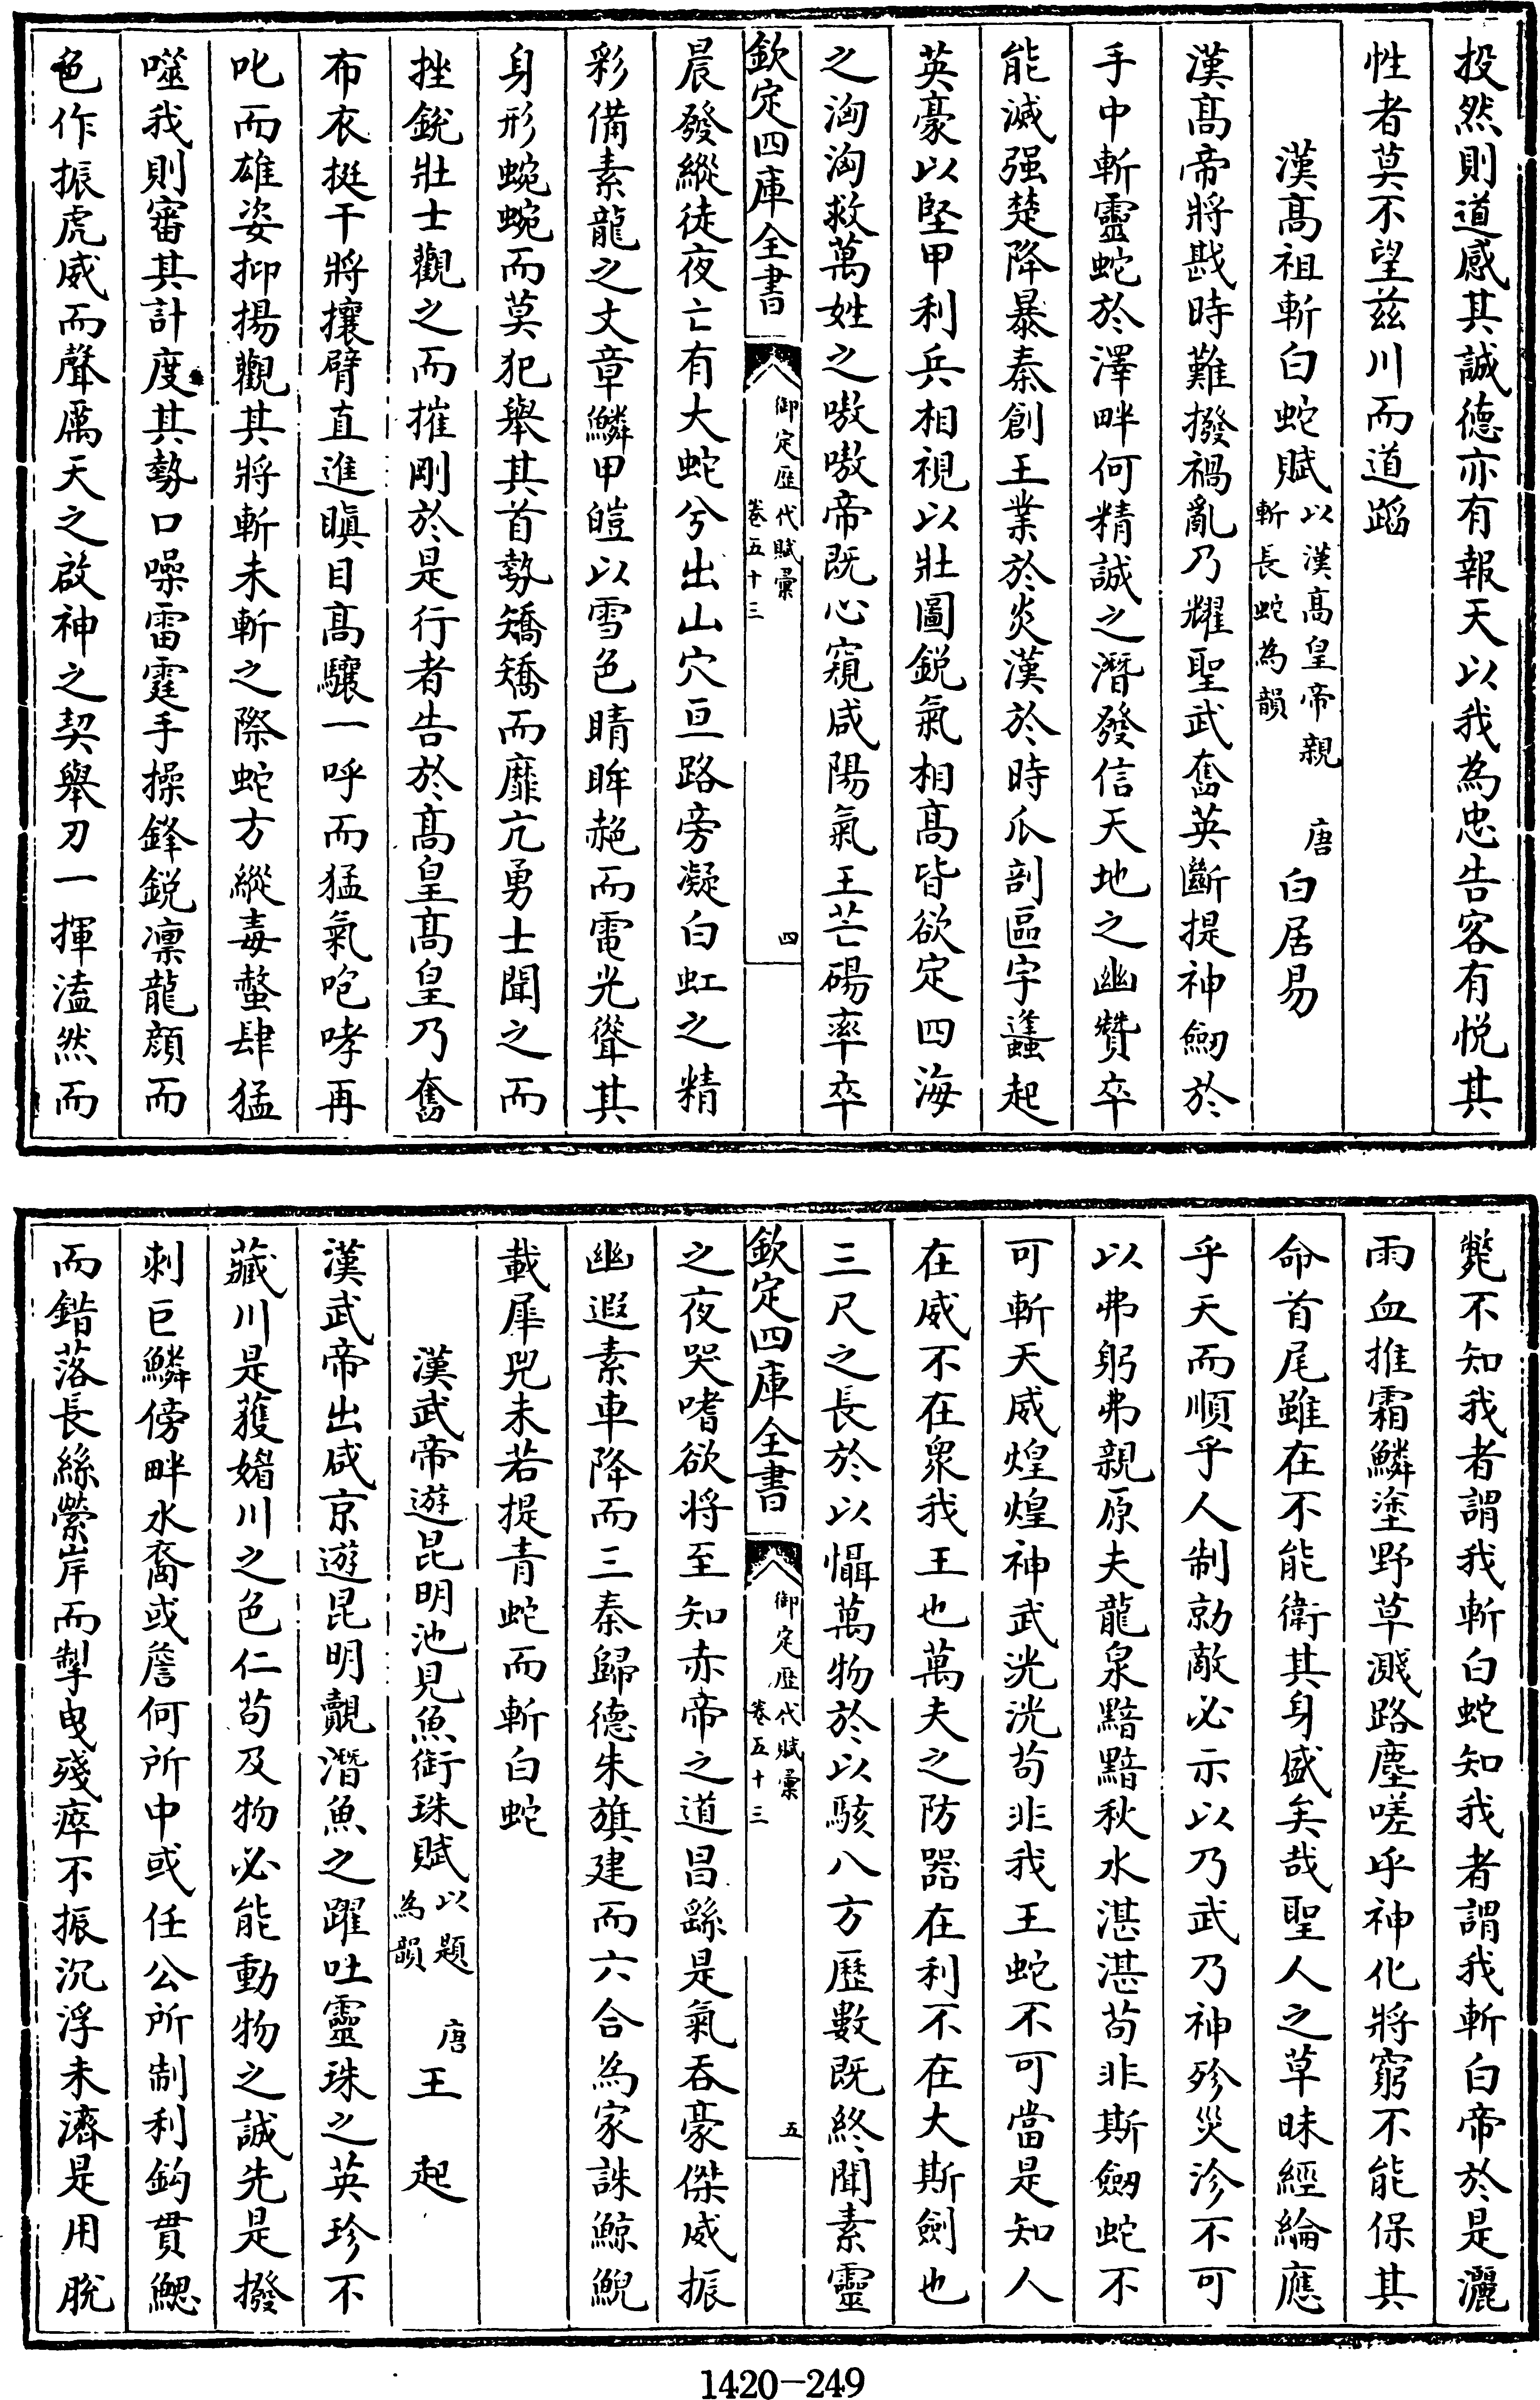 投然則道感其誠德亦有報天以我為忠告客有悦其
性者莫不望兹川而道蹈
漢髙祖斬白蛇賦以漢髙皇帝親斬長蛇為韻 唐白居易
漢髙帝將戡時難撥禍亂乃耀聖武奮英斷提神劒於
手中斬靈蛇於澤畔何精誠之潛發信天地之幽贊卒
能滅强楚降暴秦創王業於炎漢於時瓜剖區宇蠭起
英豪以堅甲利兵相視以壯圖鋭氣相髙皆欲定四海
之洶洶救萬姓之嗷嗷帝既心窺咸陽氣王芒碭率卒
欽定四庫全書 御定歴代賦彙卷五十三 四
晨發縱徒夜亡有大蛇兮出山穴亘路旁凝白虹之精
彩備素龍之文章鱗甲皚以雪色睛眸赩而電光聳其
身形蜿蜿而莫犯舉其首勢矯矯而靡亢勇士聞之而
挫鋭壯士觀之而摧剛於是行者告於髙皇髙皇乃奮
布衣挺干將攘臂直進瞋目髙驤一呼而猛氣咆哮再
叱而雄姿抑揚觀其將斬未斬之際蛇方縱毒螫肆猛
噬我則審其計度其勢口噪雷霆手操鋒鋭凛龍顔而
色作振虎威而聲厲天之啟神之契舉刃一揮溘然而
斃不知我者謂我斬白蛇知我者謂我斬白帝於是灑
雨血推霜鱗塗野草濺路塵嗟乎神化將窮不能保其
命首尾雖在不能衛其身盛矣哉聖人之草昧經綸應
乎天而順乎人制勍敵必示以乃武乃神殄災沴不可
以弗躬弗親原夫龍泉黯黯秋水湛湛苟非斯劒蛇不
可斬天威煌煌神武洸洸苟非我王蛇不可當是知人
在威不在衆我王也萬夫之防器在利不在大斯劍也
三尺之長於以懾萬物於以駭八方歴數既終聞素靈
欽定四庫全書 御定歴代賦彙卷五十三 五
之夜哭嗜欲將至知赤帝之道昌繇是氣吞豪傑威振
幽遐素車降而三秦歸德朱旗建而六合為家誅鯨鯢
載犀兕未若提青蛇而斬白蛇
漢武帝遊昆明池見魚銜珠賦以題為韻 唐王起
漢武帝出咸京遊昆明覿潛魚之躍吐靈珠之英珍不
藏川是蒦媚川之色仁苟及物必能動物之誠先是撥
刺巨鱗傍畔水裔或詹何所中或任公所制利鈎貫鰓
而錯落長絲縈岸而掣曳殘瘁不振沉浮未濟是用脫
1420-249